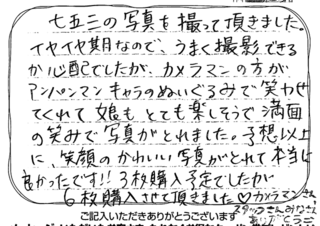 七五三の写真を撮って頂きました。
イヤイヤ期なので、うまく撮影できる
か心配でしたが、カメラマンの方が
アンパンマンキャラのぬいぐるみで笑わせ
てくれて娘もとても楽しそうで満面
の笑みで写真がとれました。予想以上
に、笑顔のかわいい写真がとれて本当に
良かったです!!3枚購入予定でしたが
6枚購入させて頂きました♡カメラマンさん
スタッフさんみなさん
ありがとうご
ご記入いただきありがとうございます